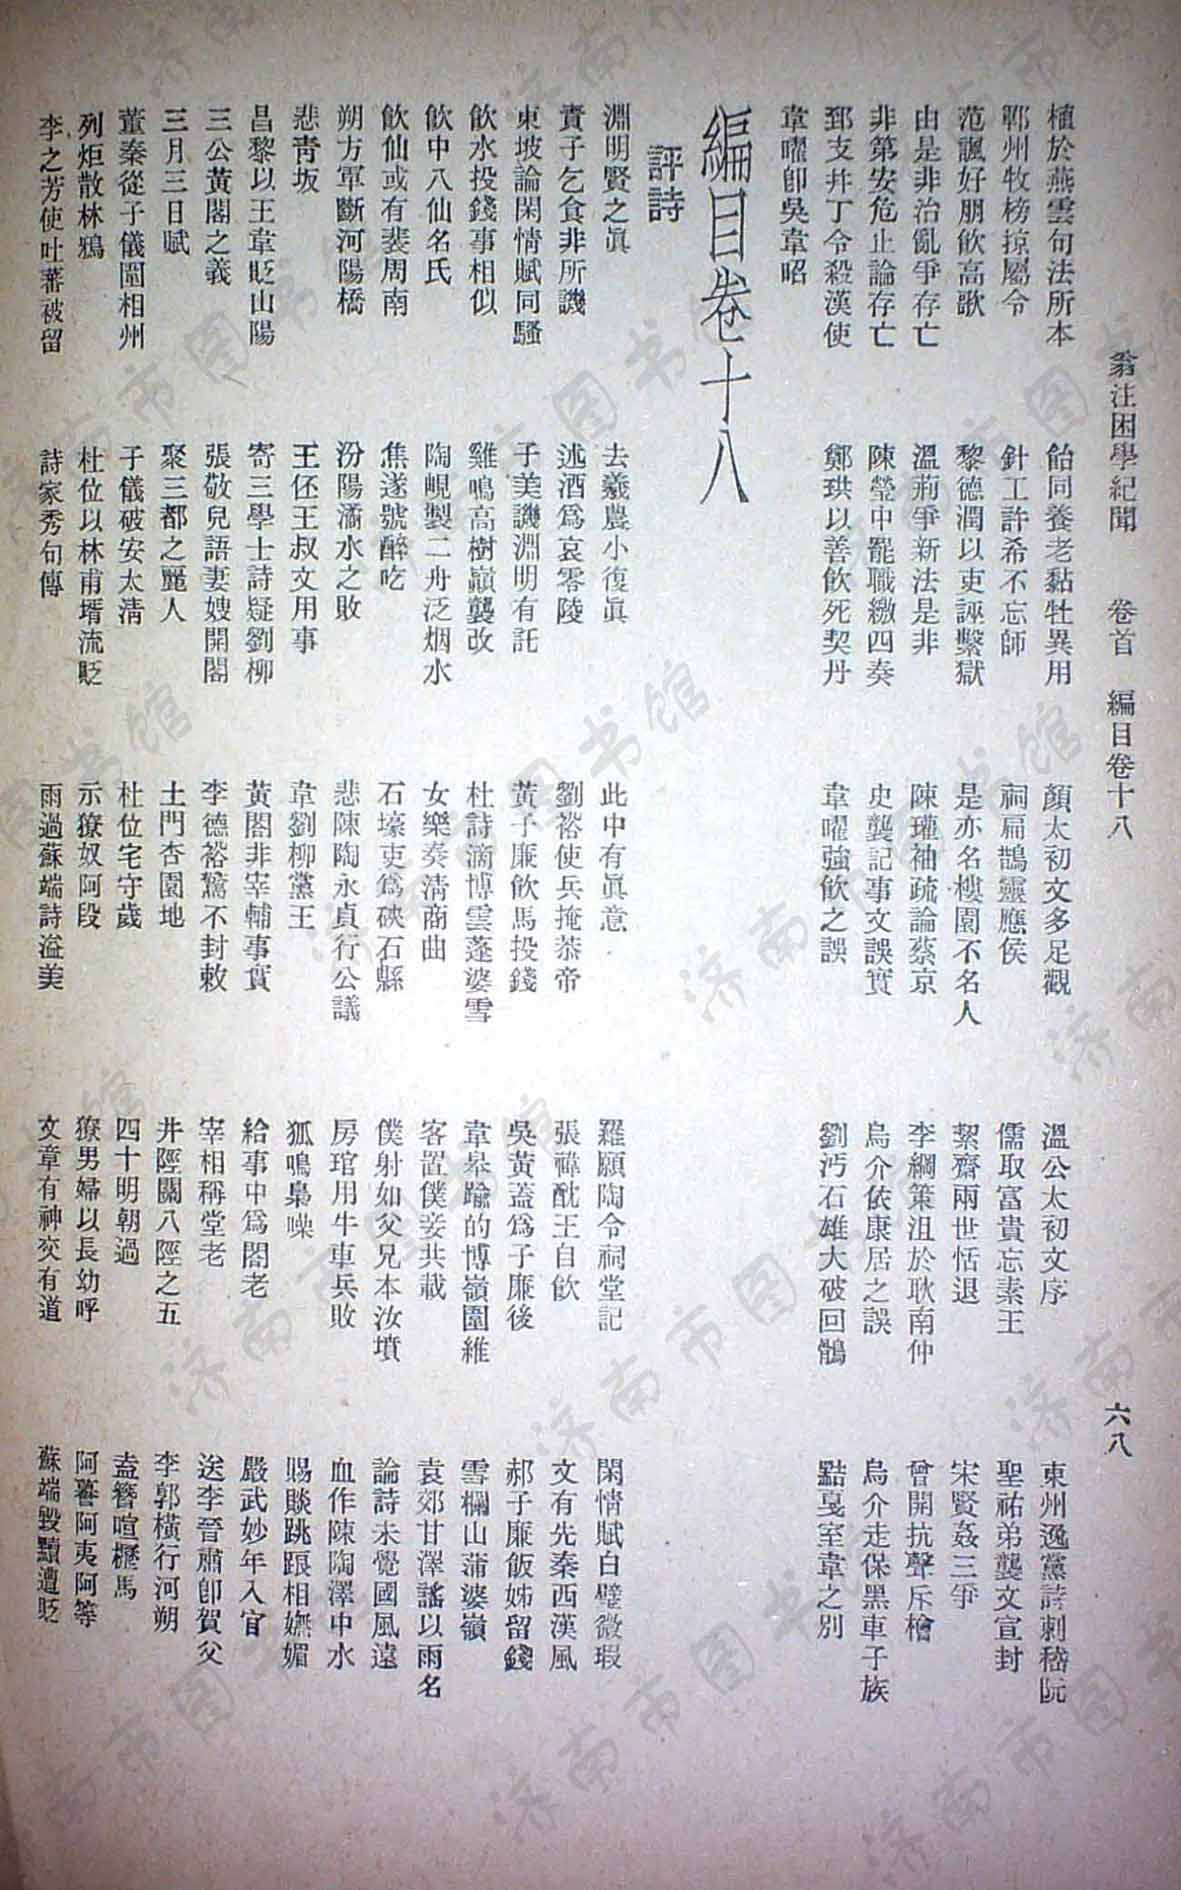 翁注困學紀聞　卷首　編目卷十八　六八
植於燕雲句法所本　飴同養老黏牡異用　顏太初文多足觀　溫公太初文序　東州逸黨詩刺嵇阮
鄆州牧榜掠屬令　針工許希不忘師　祠扁鵲靈應侯　儒取富貴忘素王　聖祐弟襲文宣封
范諷好朋飲高歌　黎德潤以吏誣繫獄　是亦名樓園不名人　絜齋兩世恬退　宋賢姦三爭
由是非治亂爭存亡　溫荊爭新法是非　陳瓘袖疏論蔡京　李綱策沮於耿南仲　曾開抗聲斥檜
非第安危止論存亡　陳瑩中罷職繳四奏　史襲記事文誤實　烏介依康居之誤　烏介走保黑車子族
郅支井丁令殺漢使　鄭珙以善飲死契丹　韋曜強飲之誤　劉沔石雄大破回鶻　黠戛室韋之別
韋曜卽吳韋昭
編目卷十八
評詩
淵明賢之眞　去羲農小復眞　此中有眞意　羅願陶令祠堂記　閑情賦白璧微瑕
責子乞食非所譏　述酒爲哀零陵　劉裕使兵掩恭帝　張禕酖王自飲　文有先秦西漢風
東坡論閑情賦同騷　子美譏淵明有託　黃子廉飲馬投錢　吳黃蓋爲子廉後　郝子廉飯姊留錢
飲水投錢事相似　雞鳴高樹巔襲改　杜詩滴博雲蓬婆雪　韋皋踰的博嶺圍維　雪欄山蒲婆嶺
飲中八仙名氏　陶峴製二舟泛烟水　女樂奏淸商曲　客置僕妾共載　袁郊甘澤謠以雨名
飲仙或有裴周南　焦遂號醉吃　石壕吏爲硤石縣　僕射如父兄本汝墳　論詩未覺國風遠
朔方軍斷河陽橋　汾陽滻水之敗　悲陳陶永貞行公議　房琯用牛車兵敗　血作陳陶澤中水
悲靑坂　王伾王叔文用事　韋劉柳黨王　狐鳴梟噪　賜賧跳踉相嫵媚
昌黎以王韋貶山陽　寄三學士詩疑劉柳　黃閣非宰輔事實　給事中爲閣老　嚴武妙年入官
三公黃閣之義　張敬兒語妻嫂開閤　李德裕驚不封敕　宰相稱堂老　送李晉肅卽賀父
三月三日賦　聚三都之麗人　土門杏園地　井陘關八陘之五　李郭橫行河朔
董秦從子儀圍相州　子儀破安太淸　杜位宅守歲　四十明朝過　盍簪喧櫪馬
列炬散林鴉　杜位以林甫壻流貶　示獠奴阿段　獠男婦以長幼呼　阿䛐阿夷阿等
李之芳使吐蕃被留　詩家秀句傳　雨過蘇端詩溢美　文章有神交有道　蘇端毀黷遭貶